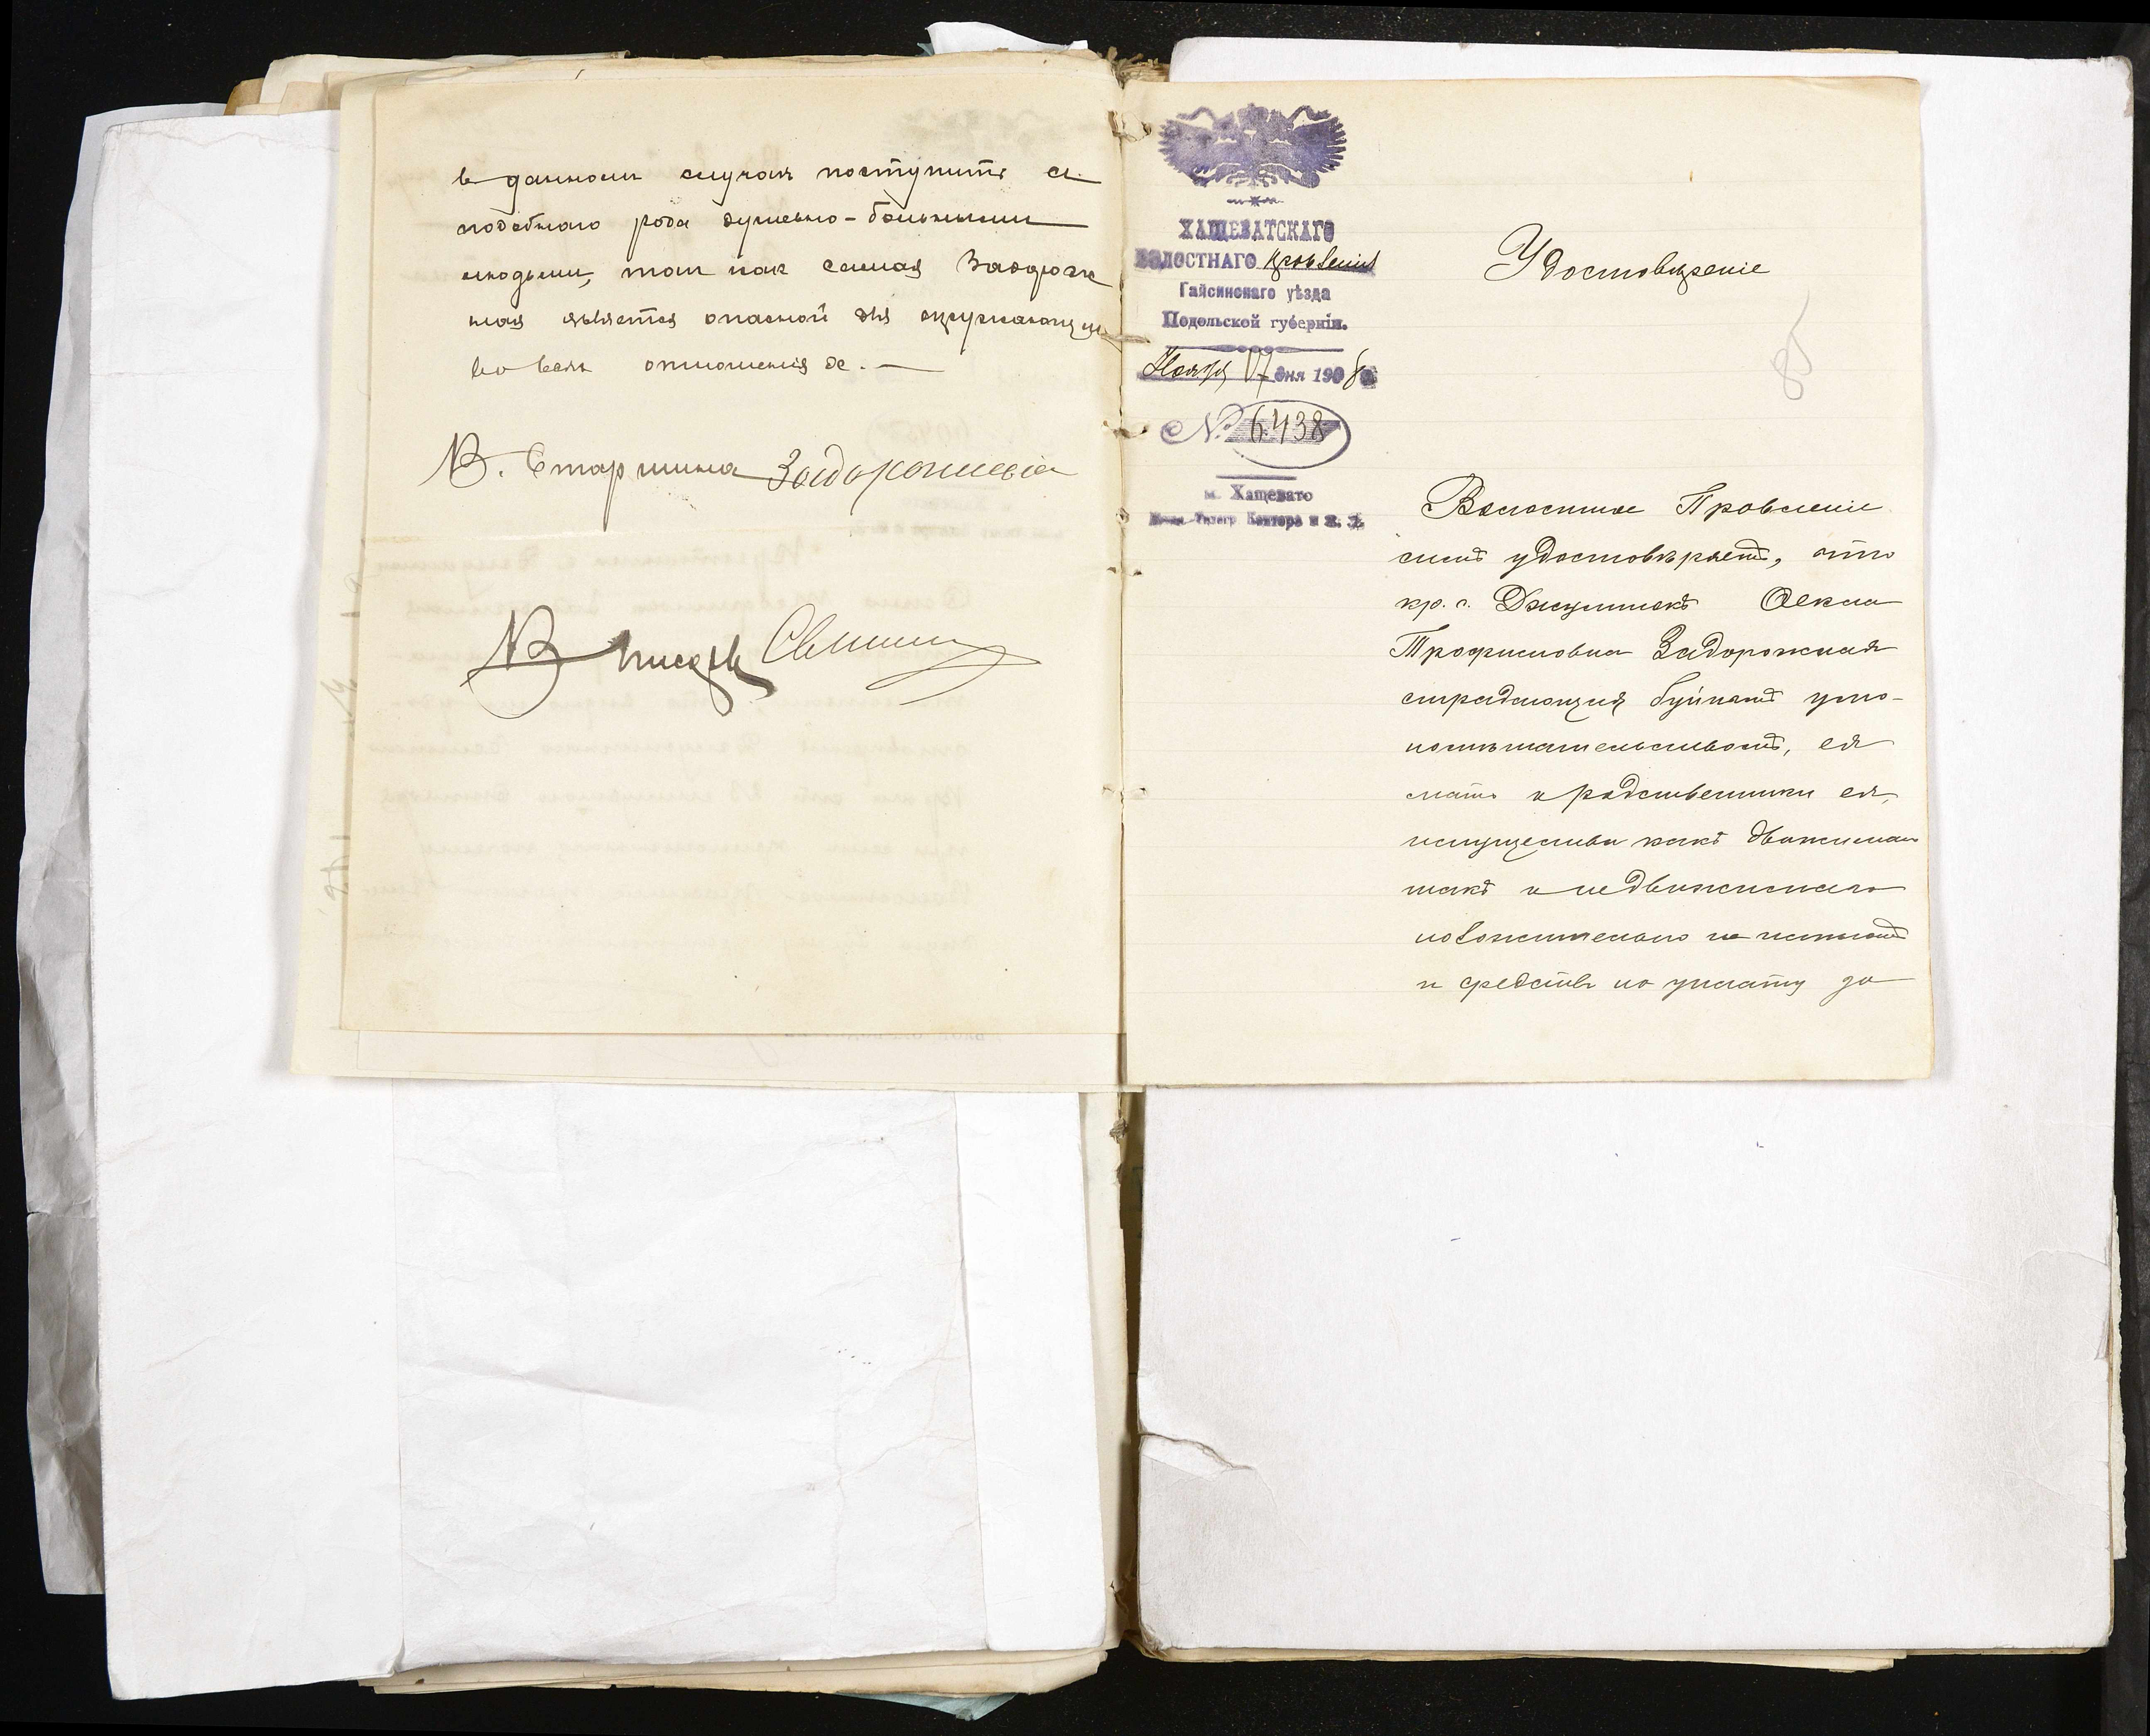 в данном случаѣ поступить съ
подобнаго рода душевно-больными
людьми, так как самая Задорож
ная является опасной для окружающих
во всѣх отношениях. —
В. Старшина Задорожный
В Писарь
ХАЩЕВАТСКАГО
ВОЛОСТНАГО правленія
Гайсинскаго уѣзда
Подольской губерніи.
Ноября 17 дня 1908 г.
№ 6438
м. Хащевато
Почт. Телегр. Контора и ж. д.
Удостовѣреніе
85
Волостное Правленіе
симъ удостовѣряетъ, что
кр. с. Джулинкъ Фекла
Трофимовна Задорожная
страдающая буйнымъ умо-
помѣшательствомъ, ея
мать и родственники ея,
имущества какъ движимаго
такъ и недвижимаго
положительно не имѣютъ
и средствъ на уплату за